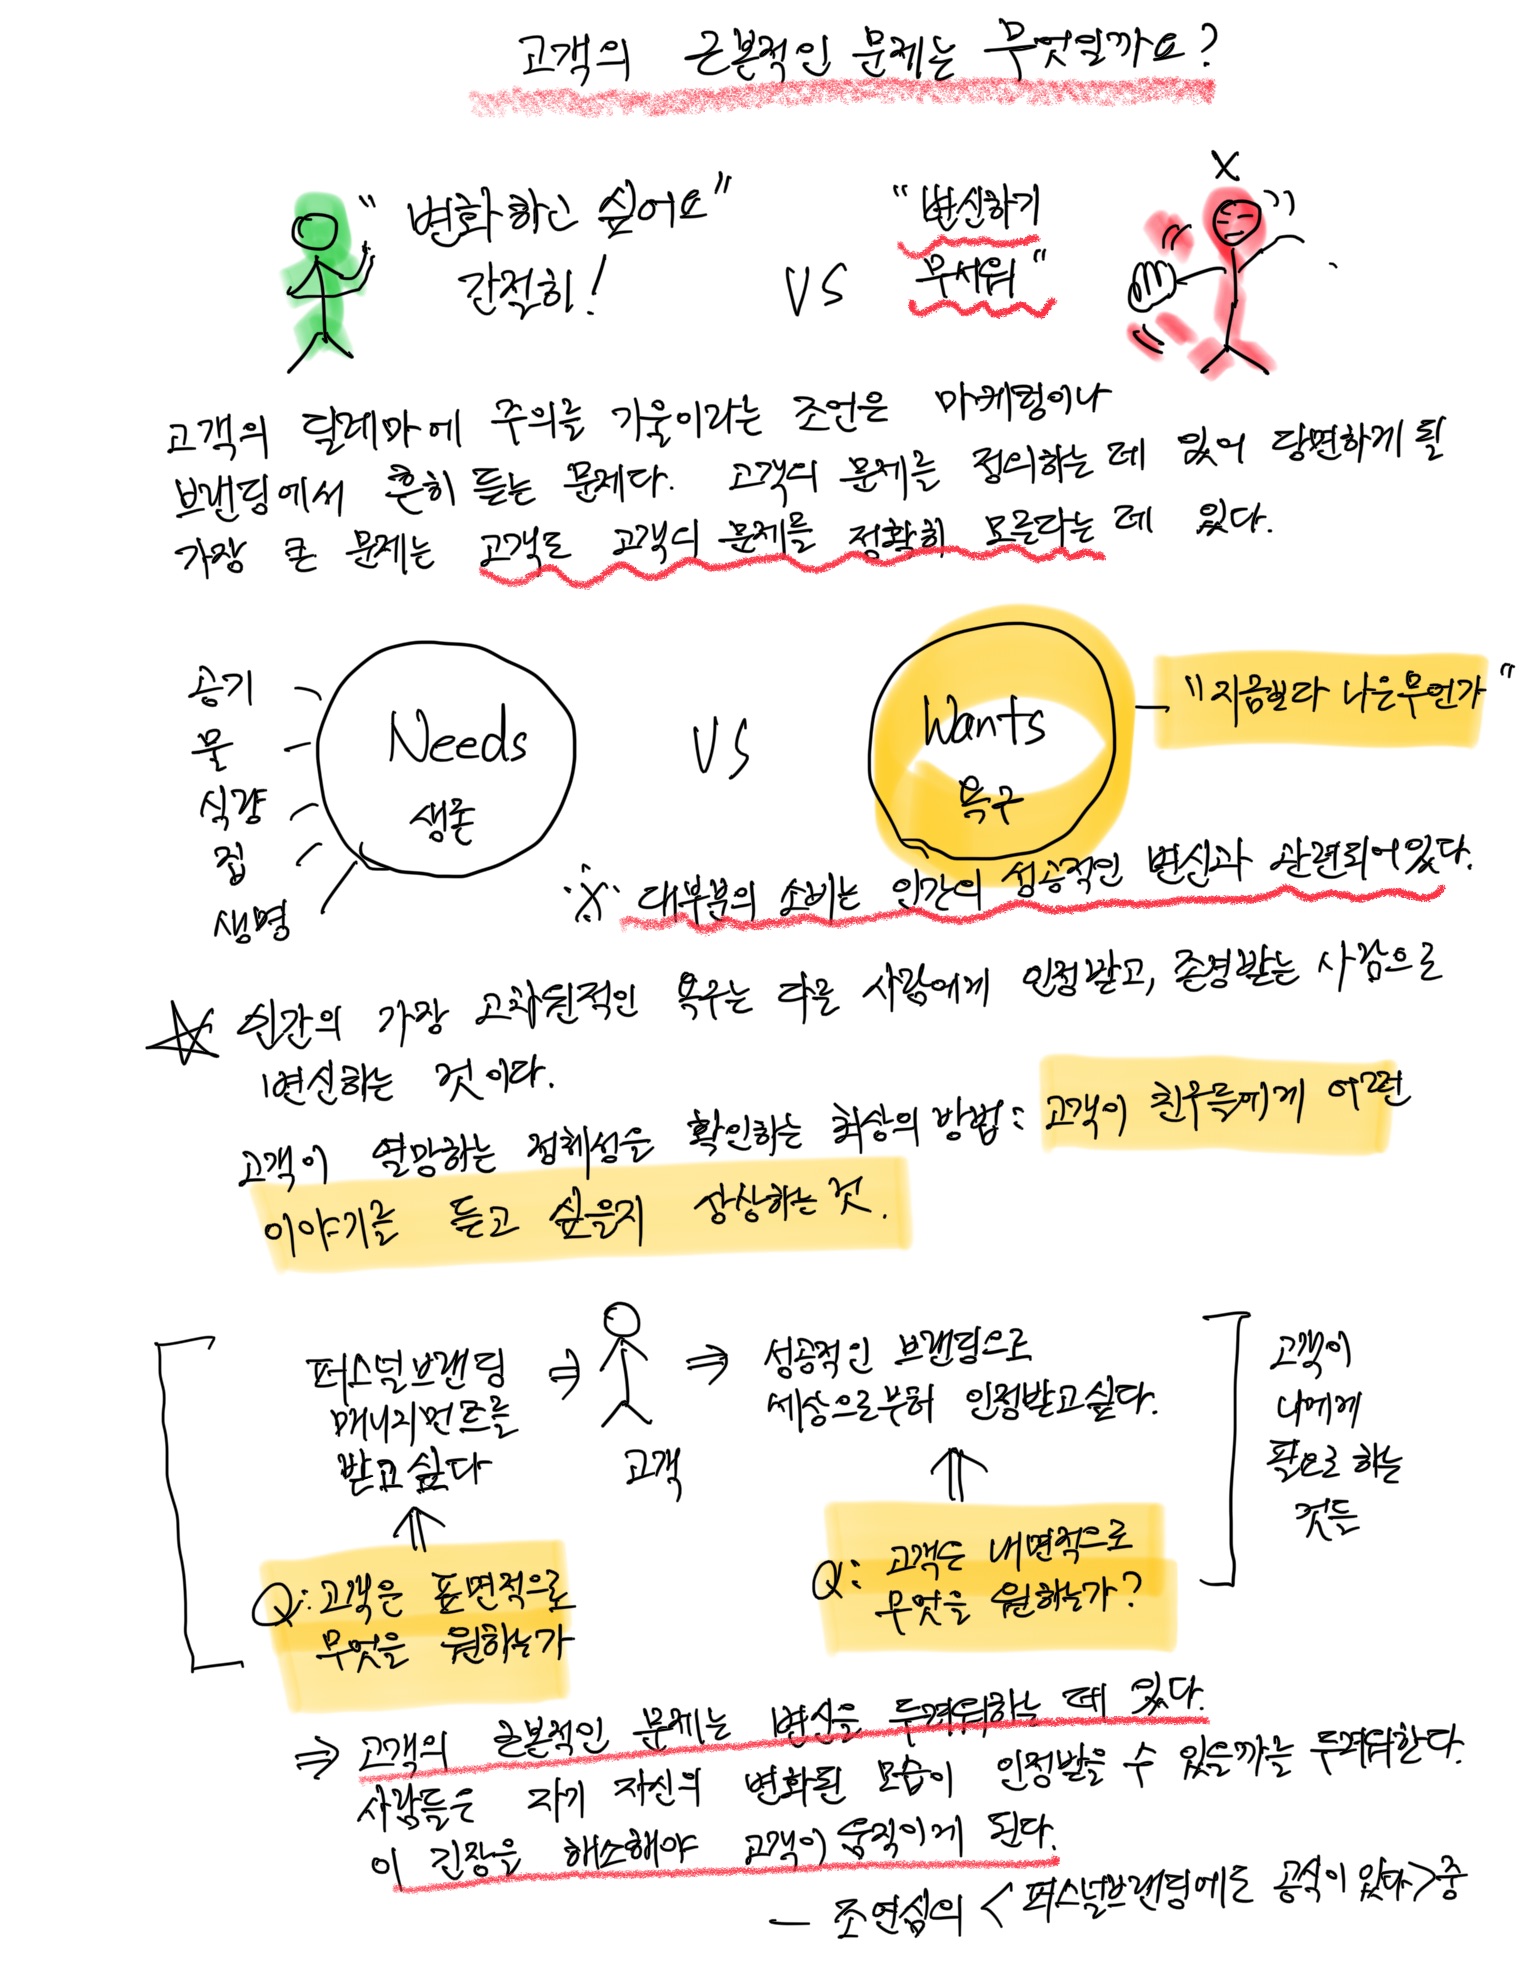 고객의 근본적인 문제는 무엇일까요?
"변화하고 싶어요"
간절히!
VS
"변신하기
무서워"
X
고객의 딜레마에 주의를 기울이라는 조언은 마케팅이나
브랜딩에서 흔히 듣는 문제다. 고객의 문제를 정의하는 데 있어 당면하게 될
가장 큰 문제는 고객도 고객의 문제를 정확히 모른다는 데 있다.
공기
물
식량
집
생명
Needs
생존
VS
Wants
욕구
"지금보다 나은 무언가"
※ 대부분의 소비는 인간의 성공적인 변신과 관련되어있다.
☆ 인간의 가장 고차원적인 욕구는 다른 사람에게 인정받고, 존경받는 사람으로
변신하는 것이다.
고객이 열망하는 정체성을 확인하는 최상의 방법: 고객이 친구들에게 어떤
이야기를 듣고 싶을지 상상하는 것.
퍼스널브랜딩
매니지먼트를
받고싶다
⇒
고객
⇒
성공적인 브랜딩으로
세상으로부터 인정받고싶다.
고객이
나에게
필요로 하는
것들
Q: 고객은 표면적으로
무엇을 원하는가
Q: 고객은 내면적으로
무엇을 원하는가?
⇒ 고객의 근본적인 문제는 변신을 두려워하는 데 있다.
사람들은 자기 자신의 변화된 모습이 인정받을 수 있을까를 두려워한다.
이 긴장을 해소해야 고객이 움직이게 된다.
- 조연심의 <퍼스널브랜딩에도 공식이 있다> 중